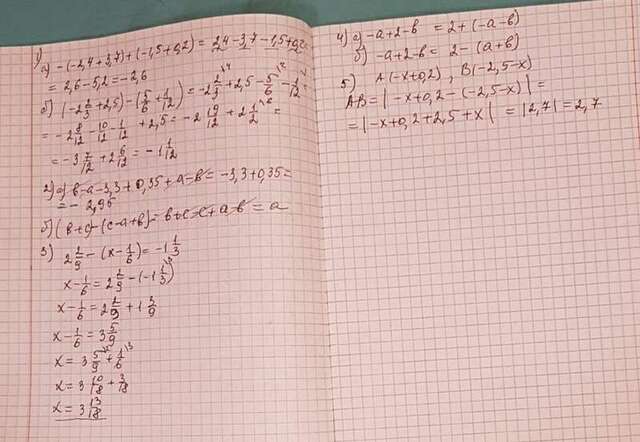 1)
а) -(-2,4+3,7)+(-1,5+0,2) = 2,4-3,7-1,5+0,2=
= 2,6-5,2=-2,6
б) (-2 2/3+2,5)-(5/6+1/12)= -2 2/3+2,5-5/6-1/12=
= -2 8/12 - 10/12 - 1/12 +2,5= -2 19/12 +2 1/2 =
= -3 7/12 +2 6/12 = -1 1/12
2) а) в-а-3,3+0,35+а-в= -3,3+0,35=
= -2,95
б) (в+с)-(с-а+в)= в+с-с+а-в = а
3) 2 2/9 -(х-1/6)= -1 1/3
х-1/6=2 2/9-(-1 1/3)
х-1/6=2 2/9+1 3/9
х-1/6=3 5/9
х=3 5/9+1/6
х=3 10/18+3/18
х=3 13/18
4) а) -а+2-в = 2+(-а-в)
б) -а+2-в= 2-(а+в)
5) А(-х+0,2) , В(-2,5-х)
АВ=|-х+0,2-(-2,5-х)|=
=|-х+0,2+2,5+х| = |2,7|=2,7